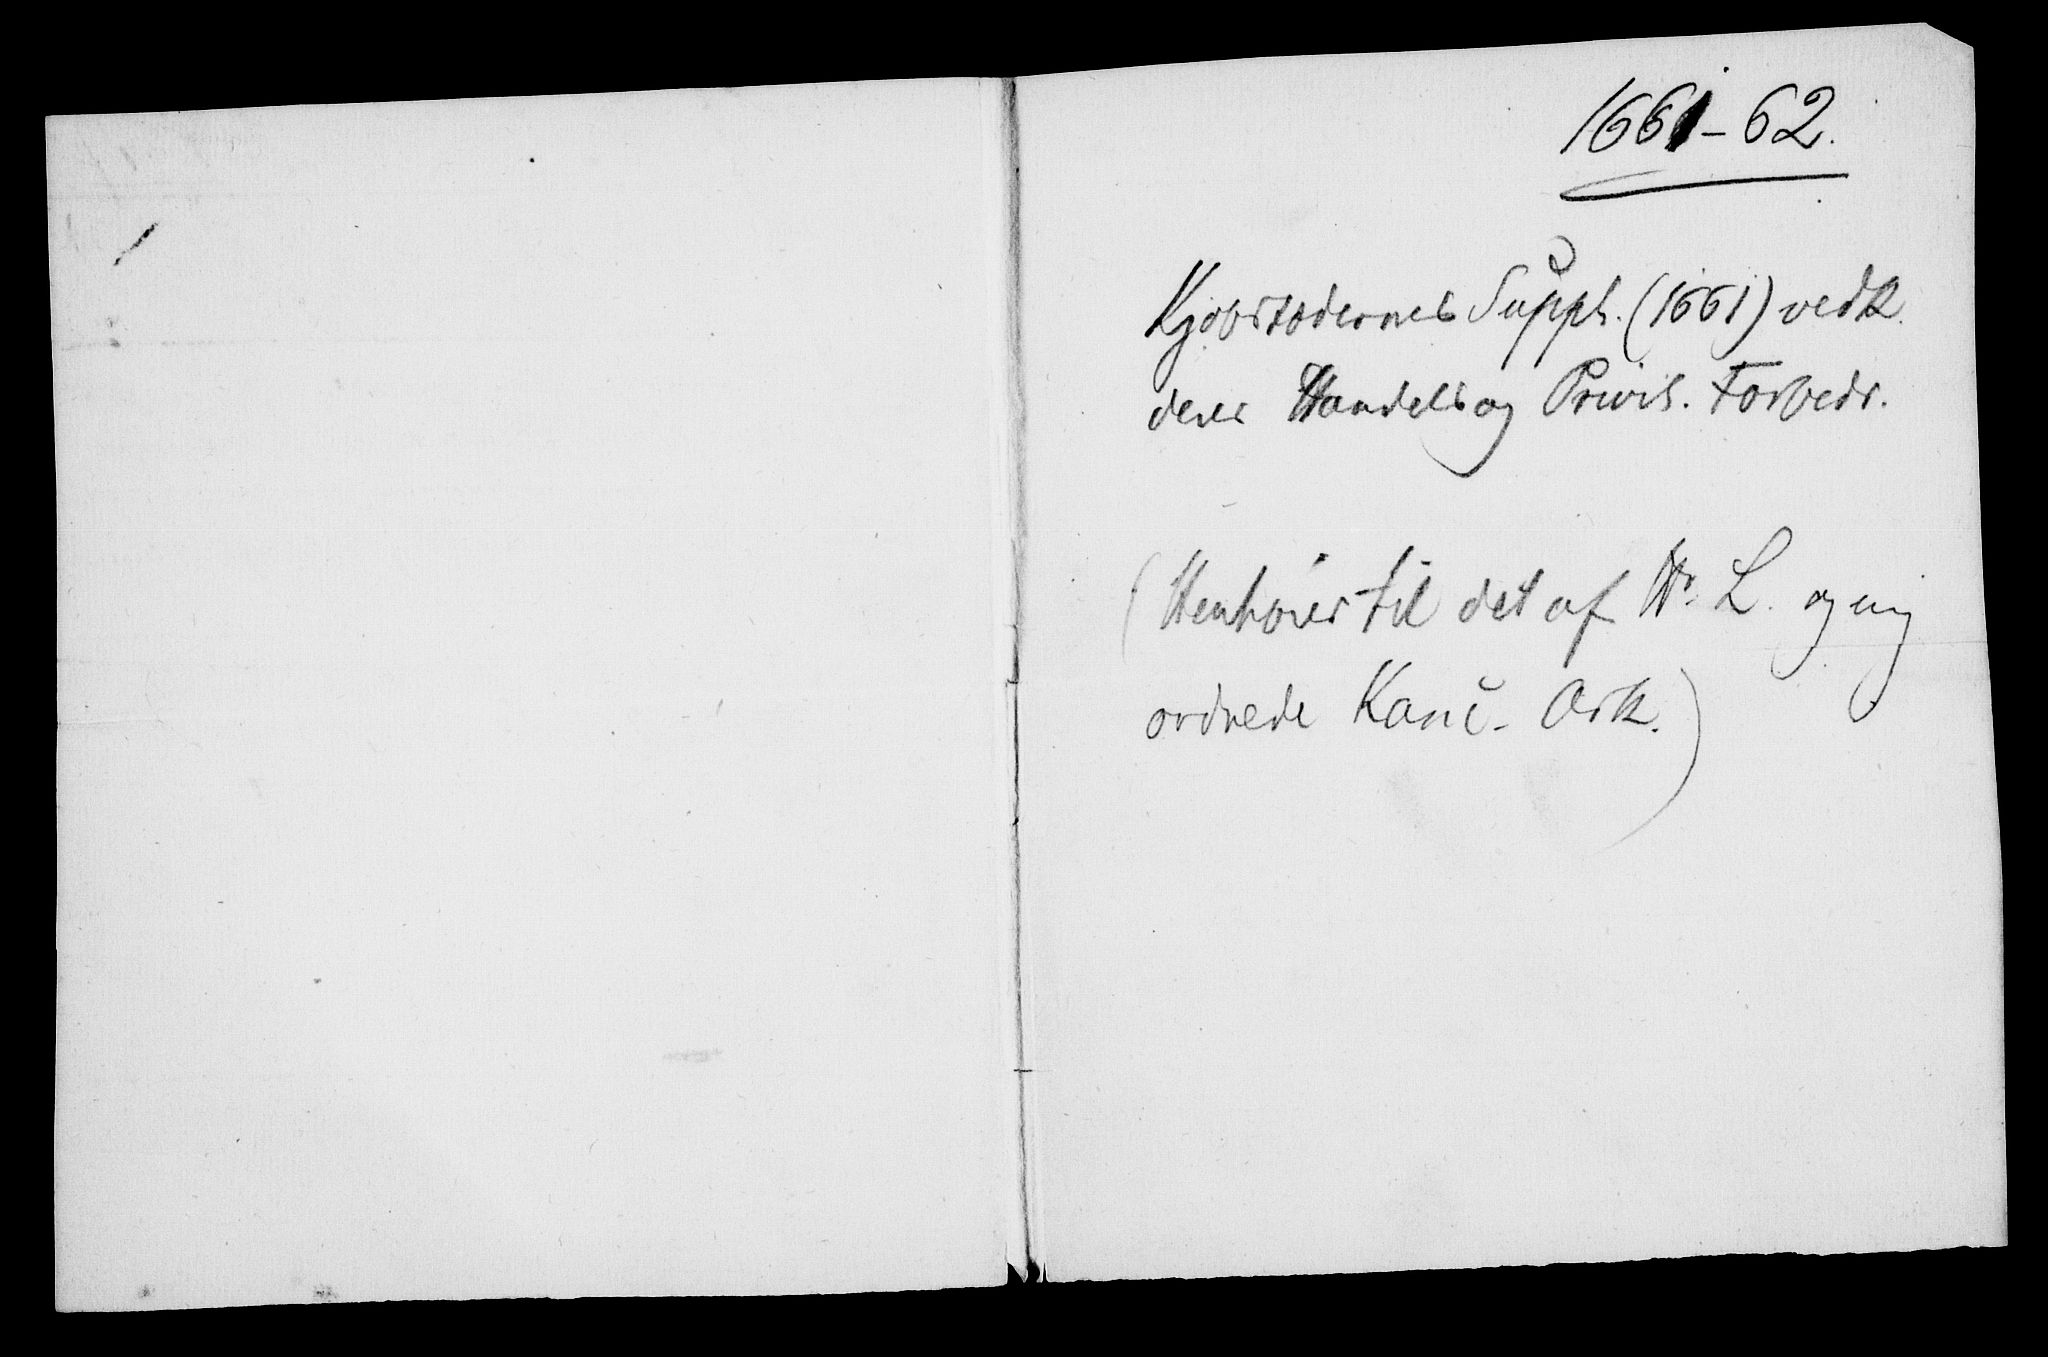 1661-62.
Kjøbstædernes Suppl. (1661) vedk.
deres Handels og Privil. Forbedr.
(Henhører til det af Hr. L. og mig
ordnede Canc. Ark.)